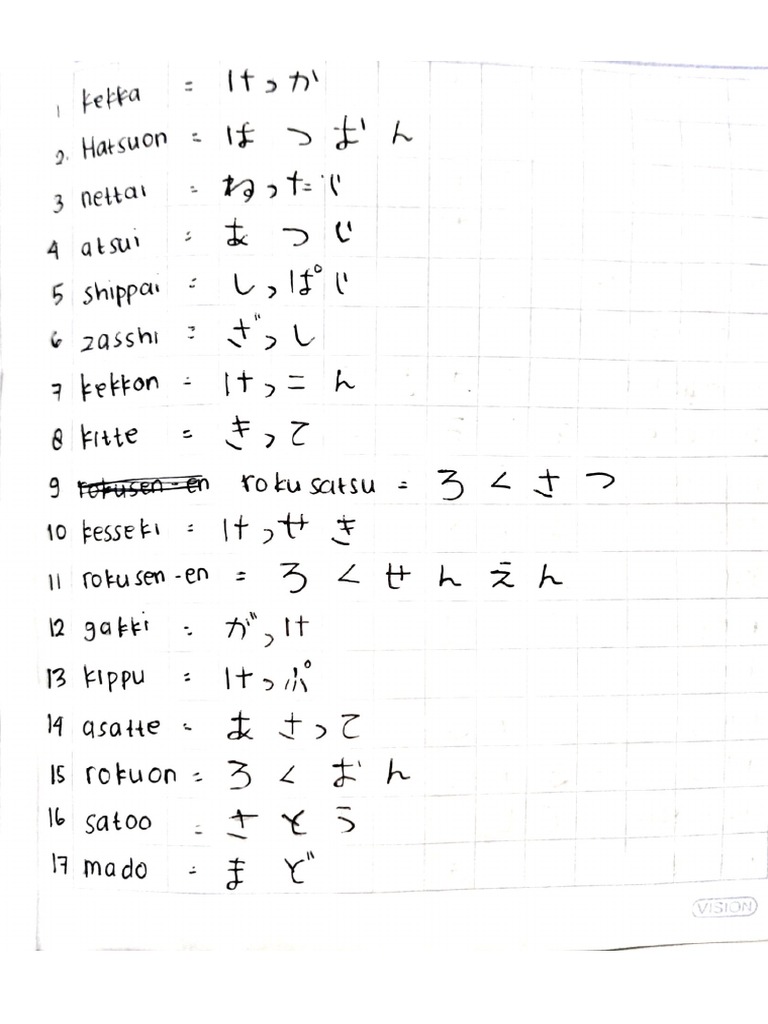 1 kekka = けっか
2. Hatsuon = はつおん
3 nettai = ねったい
4 atsui = あつい
5 shippai = しっぱい
6 zasshi = ざっし
7 kekkon = けっこん
8 kitte = きって
9 rokusen-en rokusatsu = ろくさつ
10 kesseki = けっせき
11 rokusen-en = ろくせんえん
12 gakki = がっけ
13 kippu = けっぷ
14 asatte = あさって
15 rokuon = ろくおん
16 satoo = さとう
17 mado = まど
VISION